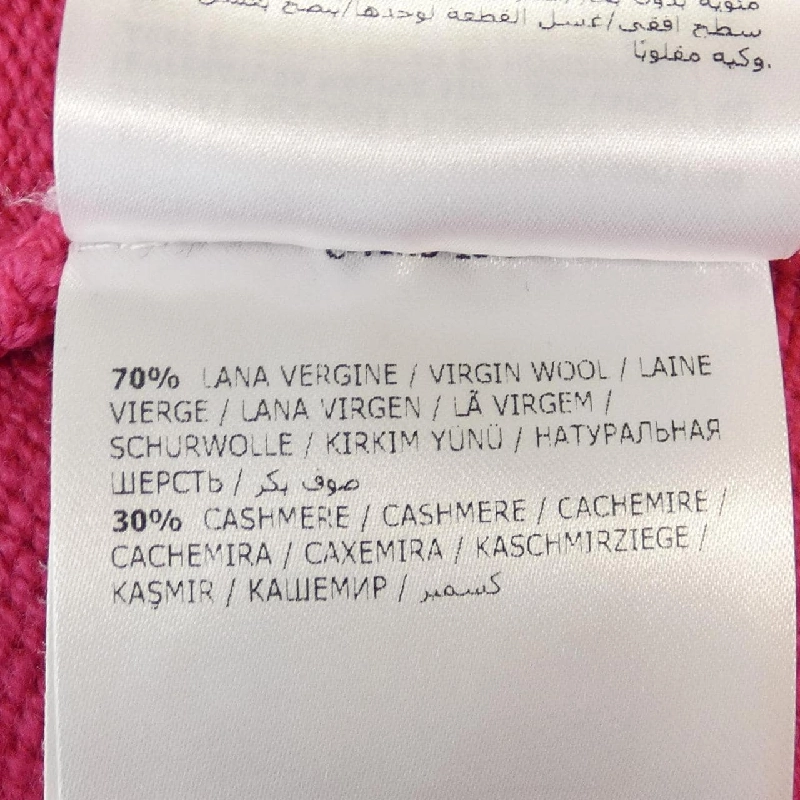 سطح افقي/غسل القطعة لوحدها/ينصح بغسل
وكيه مقلوبًا.
70% LANA VERGINE / VIRGIN WOOL / LAINE
VIERGE / LANA VIRGEN / LÃ VIRGEM /
SCHURWOLLE / KIRKIM YÜNÜ / НАТУРАЛЬНАЯ
ШЕРСТЬ / صوف بكر
30% CASHMERE / CASHMERE / CACHEMIRE /
CACHEMIRA / CAXEMIRA / KASCHMIRZIEGE /
KAŞMIR / КАШЕМИР / كسمير